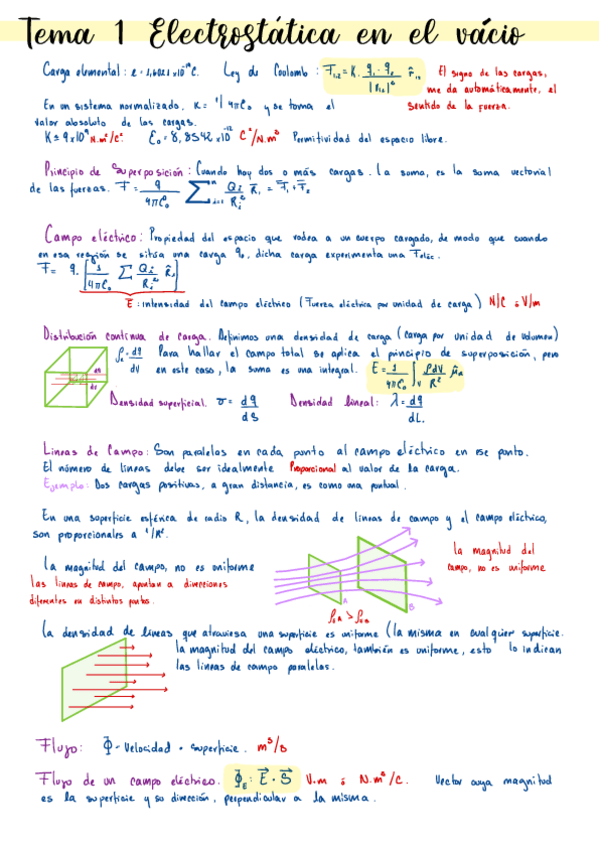 Tema 1 Electrostática en el vácio
Carga elemental: e = 1,6021 x10⁻¹⁹ C. Ley de Coulomb: F₁,₂ = K. q₁·q₂ / |r₁₂|² r̂₁₂ El signo de las cargas,
me da automáticamente, el
En un sistema normalizado, K = 1/4πε₀ y se toma el sentido de la fuerza.
valor absoluto de las cargas.
K ≈ 9x10⁹ N.m²/C² ε₀ = 8,8542 x10⁻¹² C²/N.m² Permitividad del espacio libre.
Principio de Superposición: Cuando hay dos o más cargas. La suma, es la suma vectorial
de las fuerzas. F = q / 4πε₀ Σ Qi / Ri² R̂i = F₁ + F₂
Campo eléctrico: Propiedad del espacio que rodea a un cuerpo cargado, de modo que cuando
en esa región se sitúa una carga q₀, dicha carga experimenta una Feléc.
F = q. [1 / 4πε₀ Σ Qi / Ri² R̂i]
E: intensidad del campo eléctrico (Fuerza eléctrica por unidad de carga) N/C ó V/m
Distribución continua de carga. Definimos una densidad de carga (carga por unidad de volumen)
ρ = dq / dv Para hallar el campo total se aplica el principio de superposición, pero
en este caso, la suma es una integral. E = 1 / 4πε₀ ∫v ρdV / R² μ̂R
Densidad superficial. σ = dq / dS Densidad lineal: λ = dq / dL.
Lineas de Campo: Son paralelos en cada punto al campo eléctrico en ese punto.
El número de lineas debe ser idealmente Proporcional al valor de la carga.
Ejemplo: Dos cargas positivas, a gran distancia, es como una puntual.
En una superficie esférica de radio R, la densidad de lineas de campo y el campo eléctrico,
son proporcionales a 1/R².
la magnitud del
La magnitud del campo, no es uniforme
campo, no es uniforme
las lineas de campo, apuntan a direcciones
diferentes en distintos puntos.
A
B
ρA > ρB
La densidad de lineas que atraviesa una superficie es uniforme (la misma en cualquier superficie.
la magnitud del campo eléctrico, también es uniforme, esto lo indican
las lineas de campo paralelas.
Flujo: Φ - Velocidad · superficie. m³/s
Flujo de un campo eléctrico. ΦE: E · S V.m ó N.m²/C. Vector cuya magnitud
es la superficie y su dirección, perpendicular a la misma.